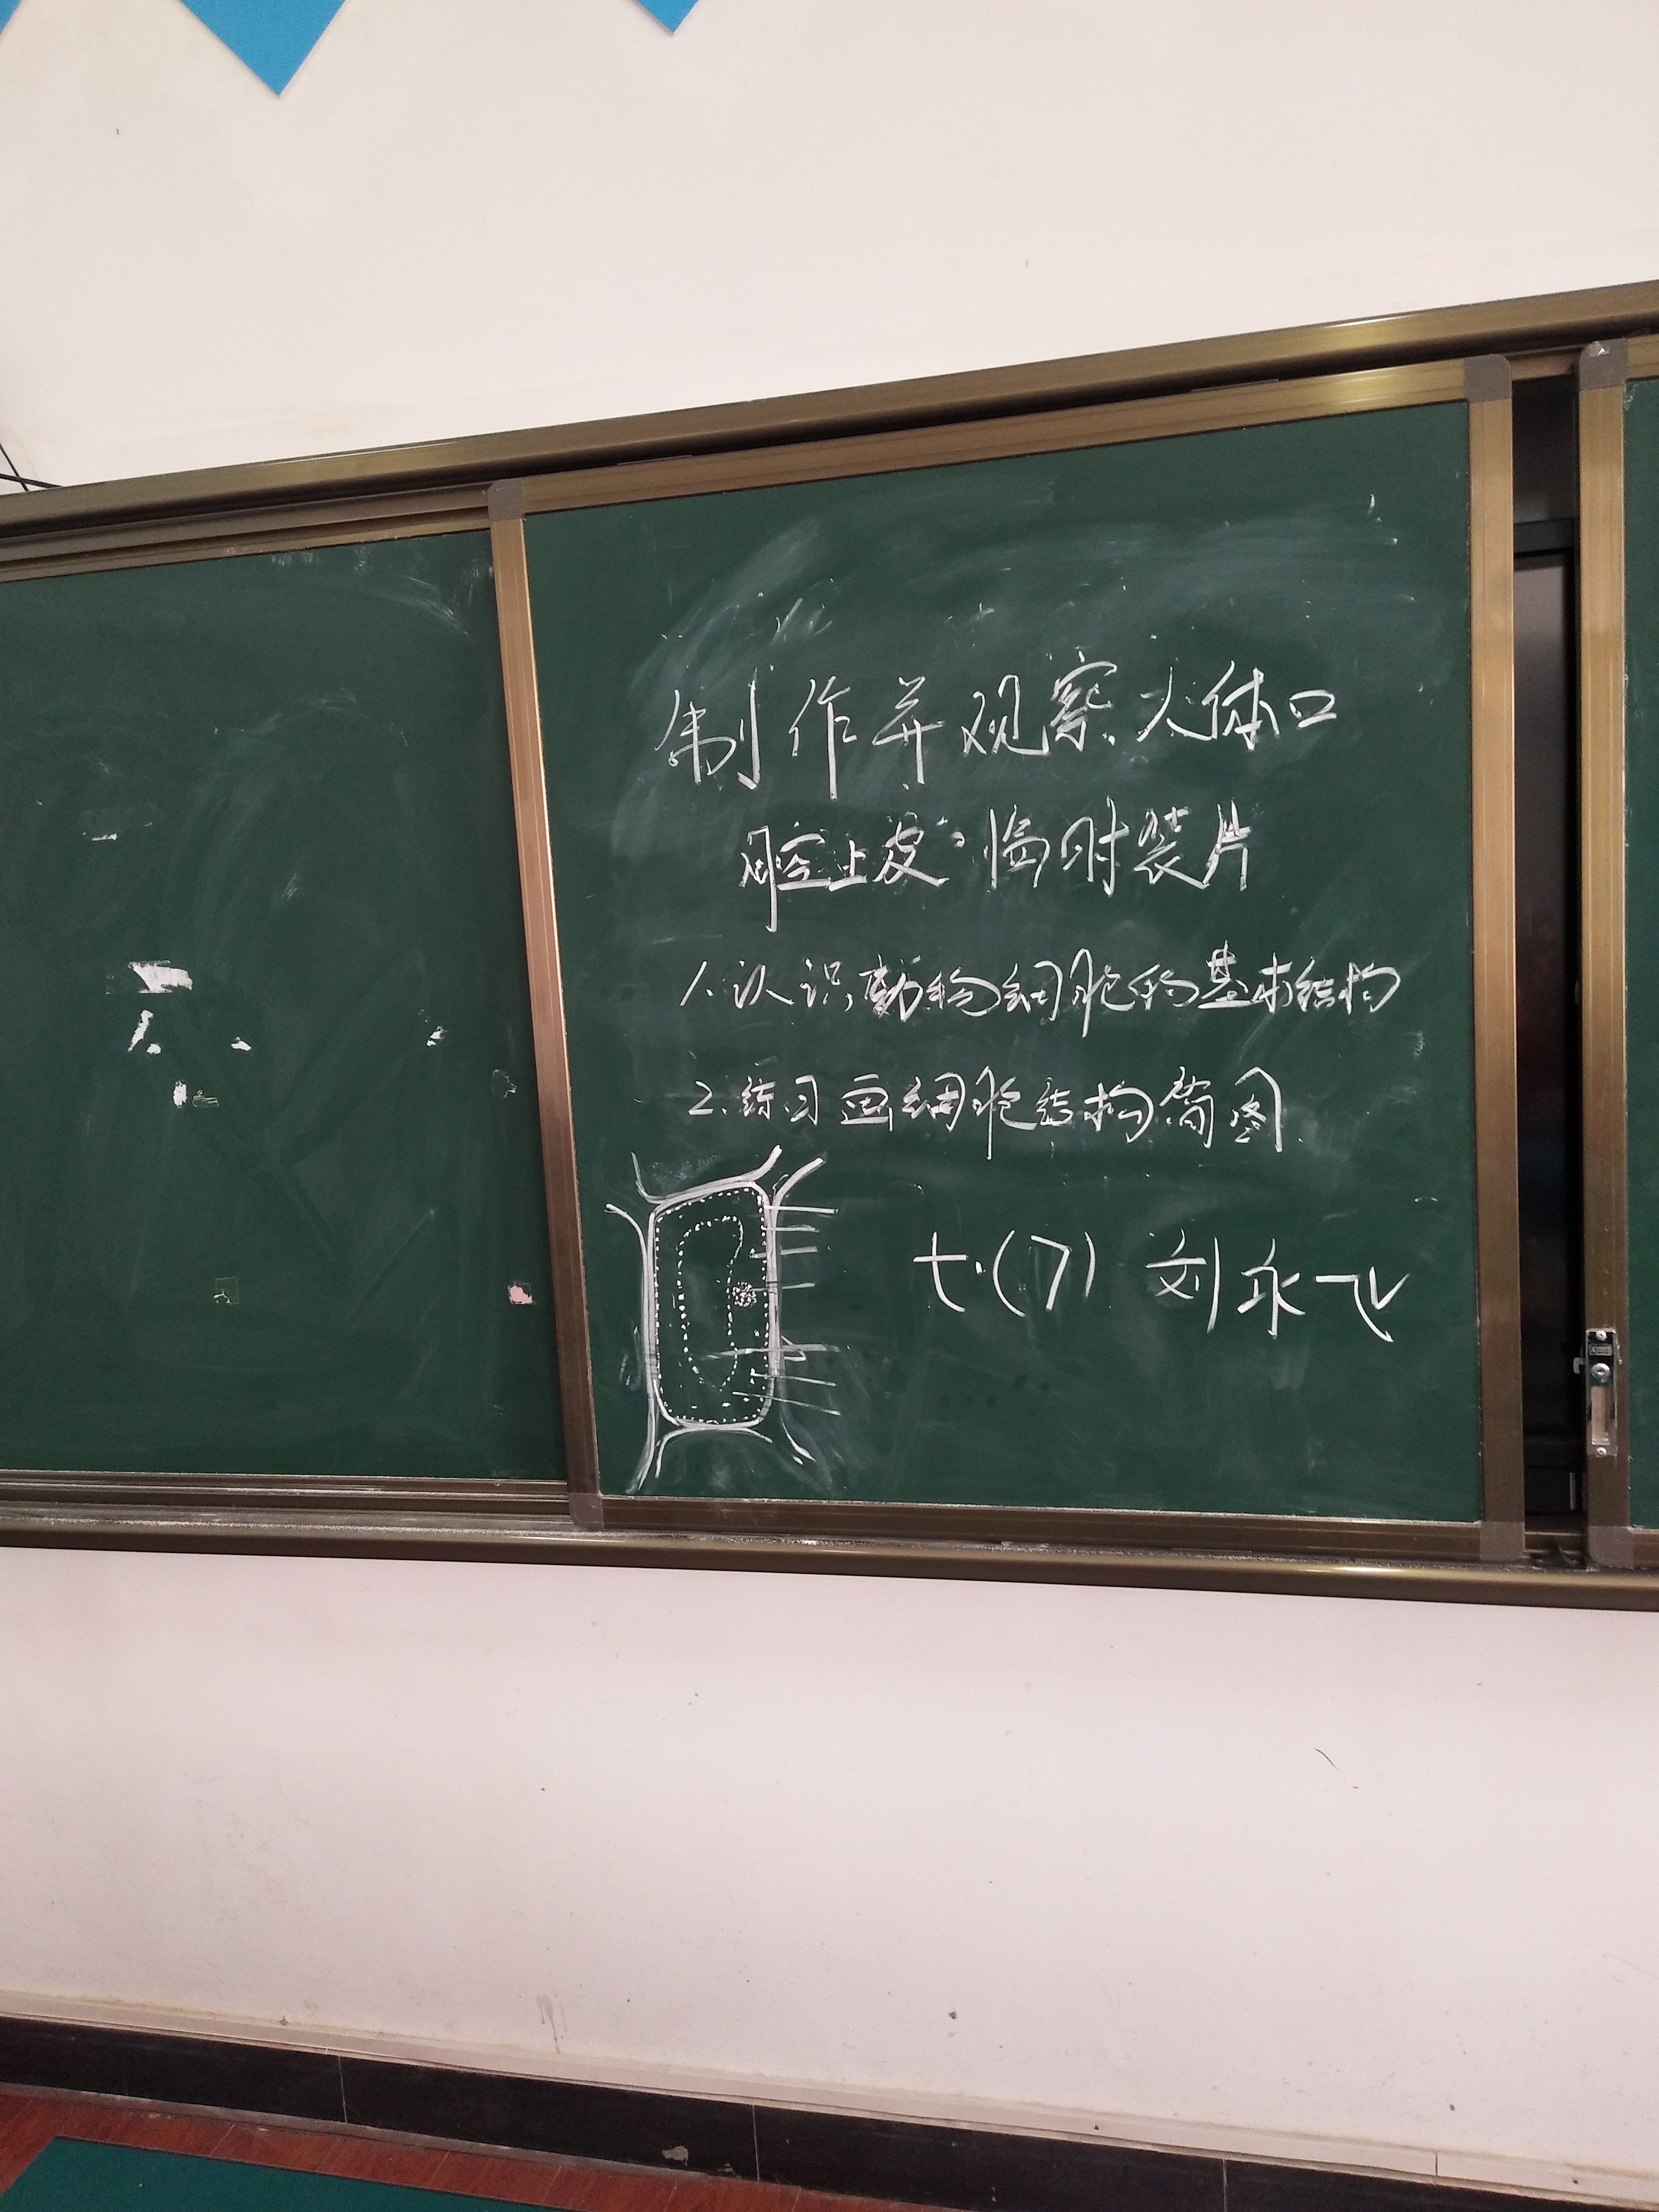 制作并观察人体口
腔上皮临时装片
1.认识动物细胞的基本结构
2.练习画细胞结构简图
七.(7) 刘永飞